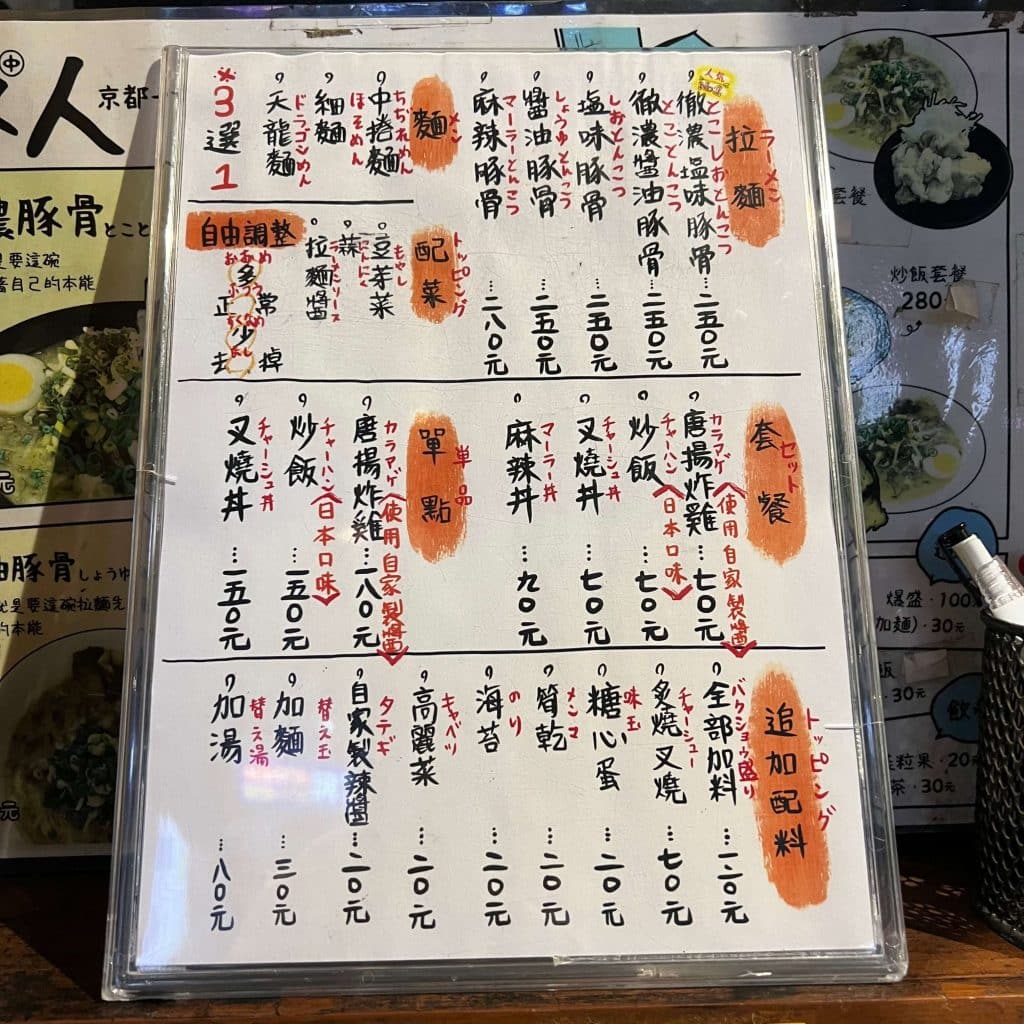 拉麵
ラーメン
人気
徹濃塩味豚骨…二五0元
とこしおとんこつ
徹濃醬油豚骨…二五0元
とことんこつ
塩味豚骨…二五0元
しおとんこつ
醬油豚骨…二五0元
しょうゆとんこつ
麻辣豚骨…二八0元
マーラーとんこつ
麵
メン
中捲麵
ちぢれめん
細麵
ほそめん
天龍麵
ドラゴンめん
*3選1
配菜
トッピング
豆芽菜
もやし
蒜
にんにく
拉麵醬
ラーメンソース
自由調整
おおめ
多
ふつう
正常
すくなめ
少
なし
去掉
套餐
セット
唐揚炸雞…七0元
カラマゲ〈使用自家製醬〉
炒飯…七0元
チャーハン〈日本口味〉
叉燒丼…七0元
チャーシュ丼
麻辣丼…九0元
マーラー丼
單點
単品
唐揚炸雞…一八0元
カラマゲ〈使用自家製醬〉
炒飯…一五0元
チャーハン〈日本口味〉
叉燒丼…一五0元
チャーシュ丼
追加配料
トッピング
全部加料…一二0元
バクショウ盛り
炙燒叉燒…七0元
チャーシュー
糖心蛋…二0元
味玉
筍乾…二0元
メンマ
海苔…二0元
のり
高麗菜…二0元
キャベツ
自家製辣醬…二0元
タテギ
加麵…三0元
替え玉
加湯…八0元
替え湯
中
人
京都
濃豚骨
とこと
是要這碗
自己的本能
油豚骨
しょうゆ
就是要這碗拉麵先
的本能
元
套餐
炒飯套餐
280
爆盛・100
加麵)・30元
飯
30元
飲
粒果・20元
茶・30元